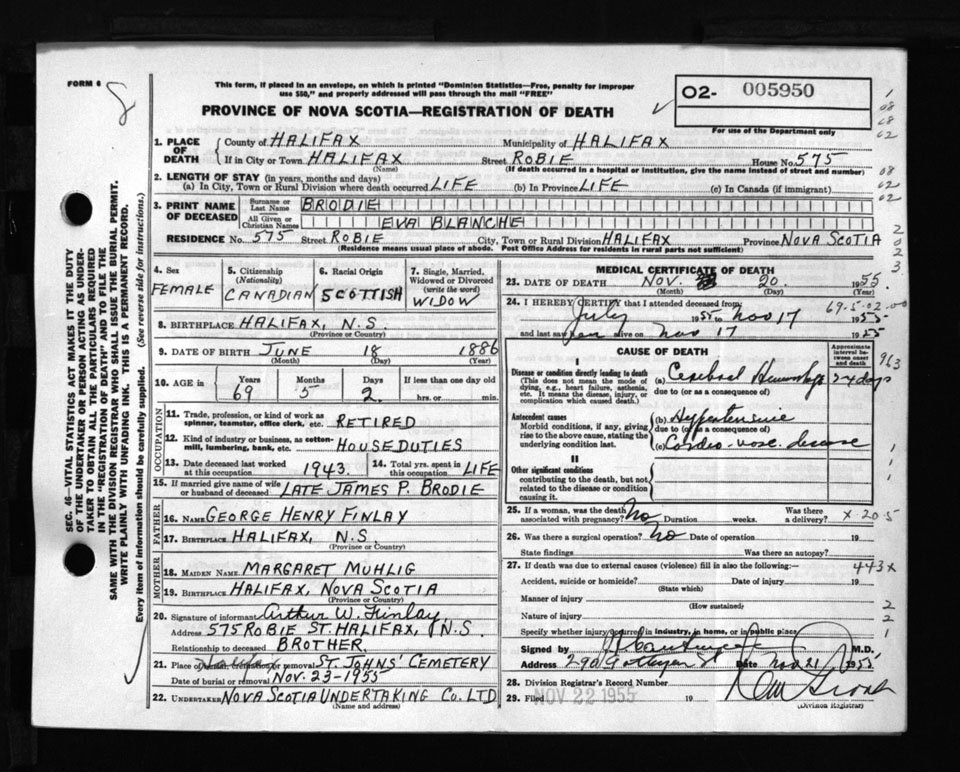 FORM 6
This form, if placed in an envelope, on which is printed "Dominion Statistics—Free, penalty for improper
use $50," and properly addressed will pass through the mail "FREE"
PROVINCE OF NOVA SCOTIA—REGISTRATION OF DEATH
02- 005950
For use of the Department only
1. PLACE OF DEATH
County of HALIFAX Municipality of HALIFAX
If in City or Town HALIFAX Street ROBIE House No. 575
(Name) (If death occurred in a hospital or institution, give the name instead of street and number)
2. LENGTH OF STAY (in years, months and days)
(a) In City, Town or Rural Division where death occurred LIFE (b) In Province LIFE (c) In Canada (if immigrant)
3. PRINT NAME OF DECEASED
Surname or Last Name BRODIE
All Given or Christian Names EVA BLANCHE
RESIDENCE No. 575 Street ROBIE City, Town or Rural Division HALIFAX Province NOVA SCOTIA
(Residence means usual place of abode. Post Office Address for residents in rural parts not sufficient)
4. Sex FEMALE
5. Citizenship (Nationality) CANADIAN
6. Racial Origin SCOTTISH
7. Single, Married, Widowed or Divorced (write the word) WIDOW
8. BIRTHPLACE HALIFAX, N.S
(Province or Country)
9. DATE OF BIRTH JUNE 18 1886
(Month) (Day) (Year)
10. AGE in Years 69 Months 5 Days 2. If less than one day old hrs. or min.
OCCUPATION
11. Trade, profession, or kind of work as spinner, teamster, office clerk, etc. RETIRED
12. Kind of industry or business, as cotton-mill, lumbering, bank, etc. HOUSEDUTIES
13. Date deceased last worked at this occupation 1943. 14. Total yrs. spent in this occupation LIFE
15. If married give name of wife or husband of deceased LATE JAMES P. BRODIE
FATHER
16. NAME GEORGE HENRY FINLAY
17. BIRTHPLACE HALIFAX, N.S.
(Province or Country)
MOTHER
18. MAIDEN NAME MARGARET MUHLIG
19. BIRTHPLACE HALIFAX, NOVA SCOTIA
(Province or Country)
20. Signature of informant Arthur W. Finlay
Address 575 ROBIE ST. HALIFAX, N.S.
Relationship to deceased BROTHER.
21. Place of burial, cremation or removal ST. JOHNS' CEMETERY
Date of burial or removal NOV. 23-1955
22. UNDERTAKER NOVA SCOTIA UNDERTAKING Co. LTD
(Name and address)
MEDICAL CERTIFICATE OF DEATH
23. DATE OF DEATH NOV. 20. 1955
(Month) (Day)
24. I HEREBY CERTIFY that I attended deceased from
July 1955 to Nov 17 1955
and last saw her alive on Nov 17 1955
CAUSE OF DEATH
Approximate interval between onset and death
I
Disease or condition directly leading to death
(This does not mean the mode of dying, e.g., heart failure, asthenia, etc. It means the disease, injury, or complication which caused death.)
(a) Cerebral Hemorrhage 2-4 days
due to (or as a consequence of)
Antecedent causes
Morbid conditions, if any, giving rise to the above cause, stating the underlying condition last.
(b) Hypertensive
due to (or as a consequence of)
(c) Cardio-vasc. disease
II
Other significant conditions
contributing to the death, but not related to the disease or condition causing it.
25. If a woman, was the death associated with pregnancy? No Duration weeks. Was there a delivery?
26. Was there a surgical operation? No Date of operation 19
State findings Was there an autopsy?
27. If death was due to external causes (violence) fill in also the following:—
Accident, suicide or homicide? Date of injury 19
(State which)
Manner of injury
(How sustained)
Nature of injury
Specify whether injury occurred in industry, in home, or in public place
Signed by M.D.
Address 290 Gottingen St Date Nov 21 1955
28. Division Registrar's Record Number
29. Filed NOV 22 1955 19
(Division Registrar)
SEC. 46—VITAL STATISTICS ACT MAKES IT THE DUTY
OF THE UNDERTAKER OR PERSON ACTING AS UNDER-
TAKER TO OBTAIN ALL THE PARTICULARS REQUIRED
IN THE "REGISTRATION OF DEATH" AND TO FILE THE
SAME WITH THE DIVISION REGISTRAR WHO SHALL ISSUE THE BURIAL PERMIT.
WRITE PLAINLY WITH UNFADING INK. THIS IS A PERMANENT RECORD.
Every item of information should be carefully supplied. (See reverse side for instructions.)
69-5-02-00
963
X 20.5
443X